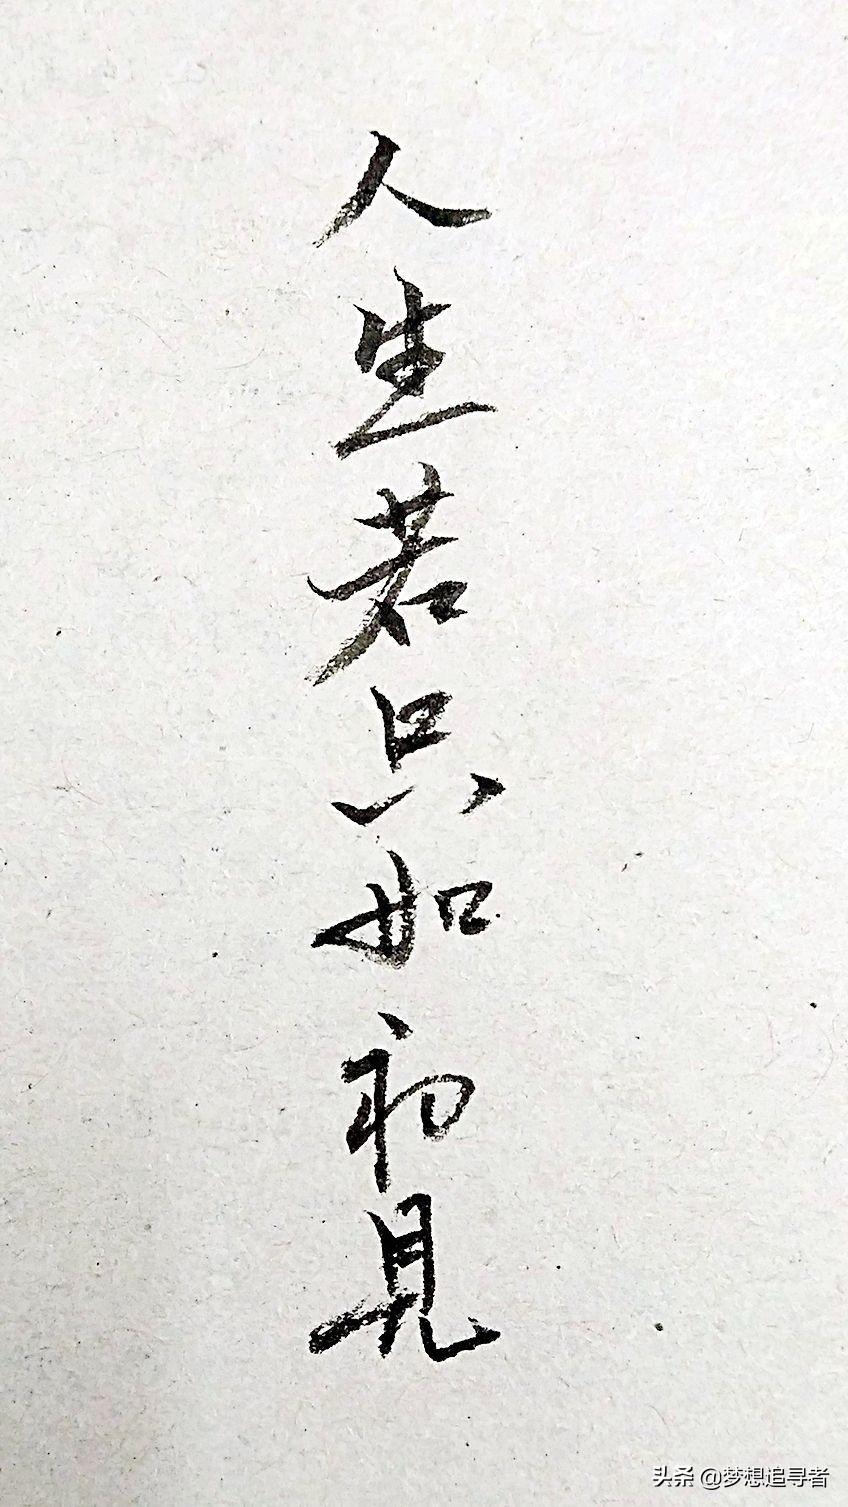 人生若只如初見
头条 @梦想追寻者